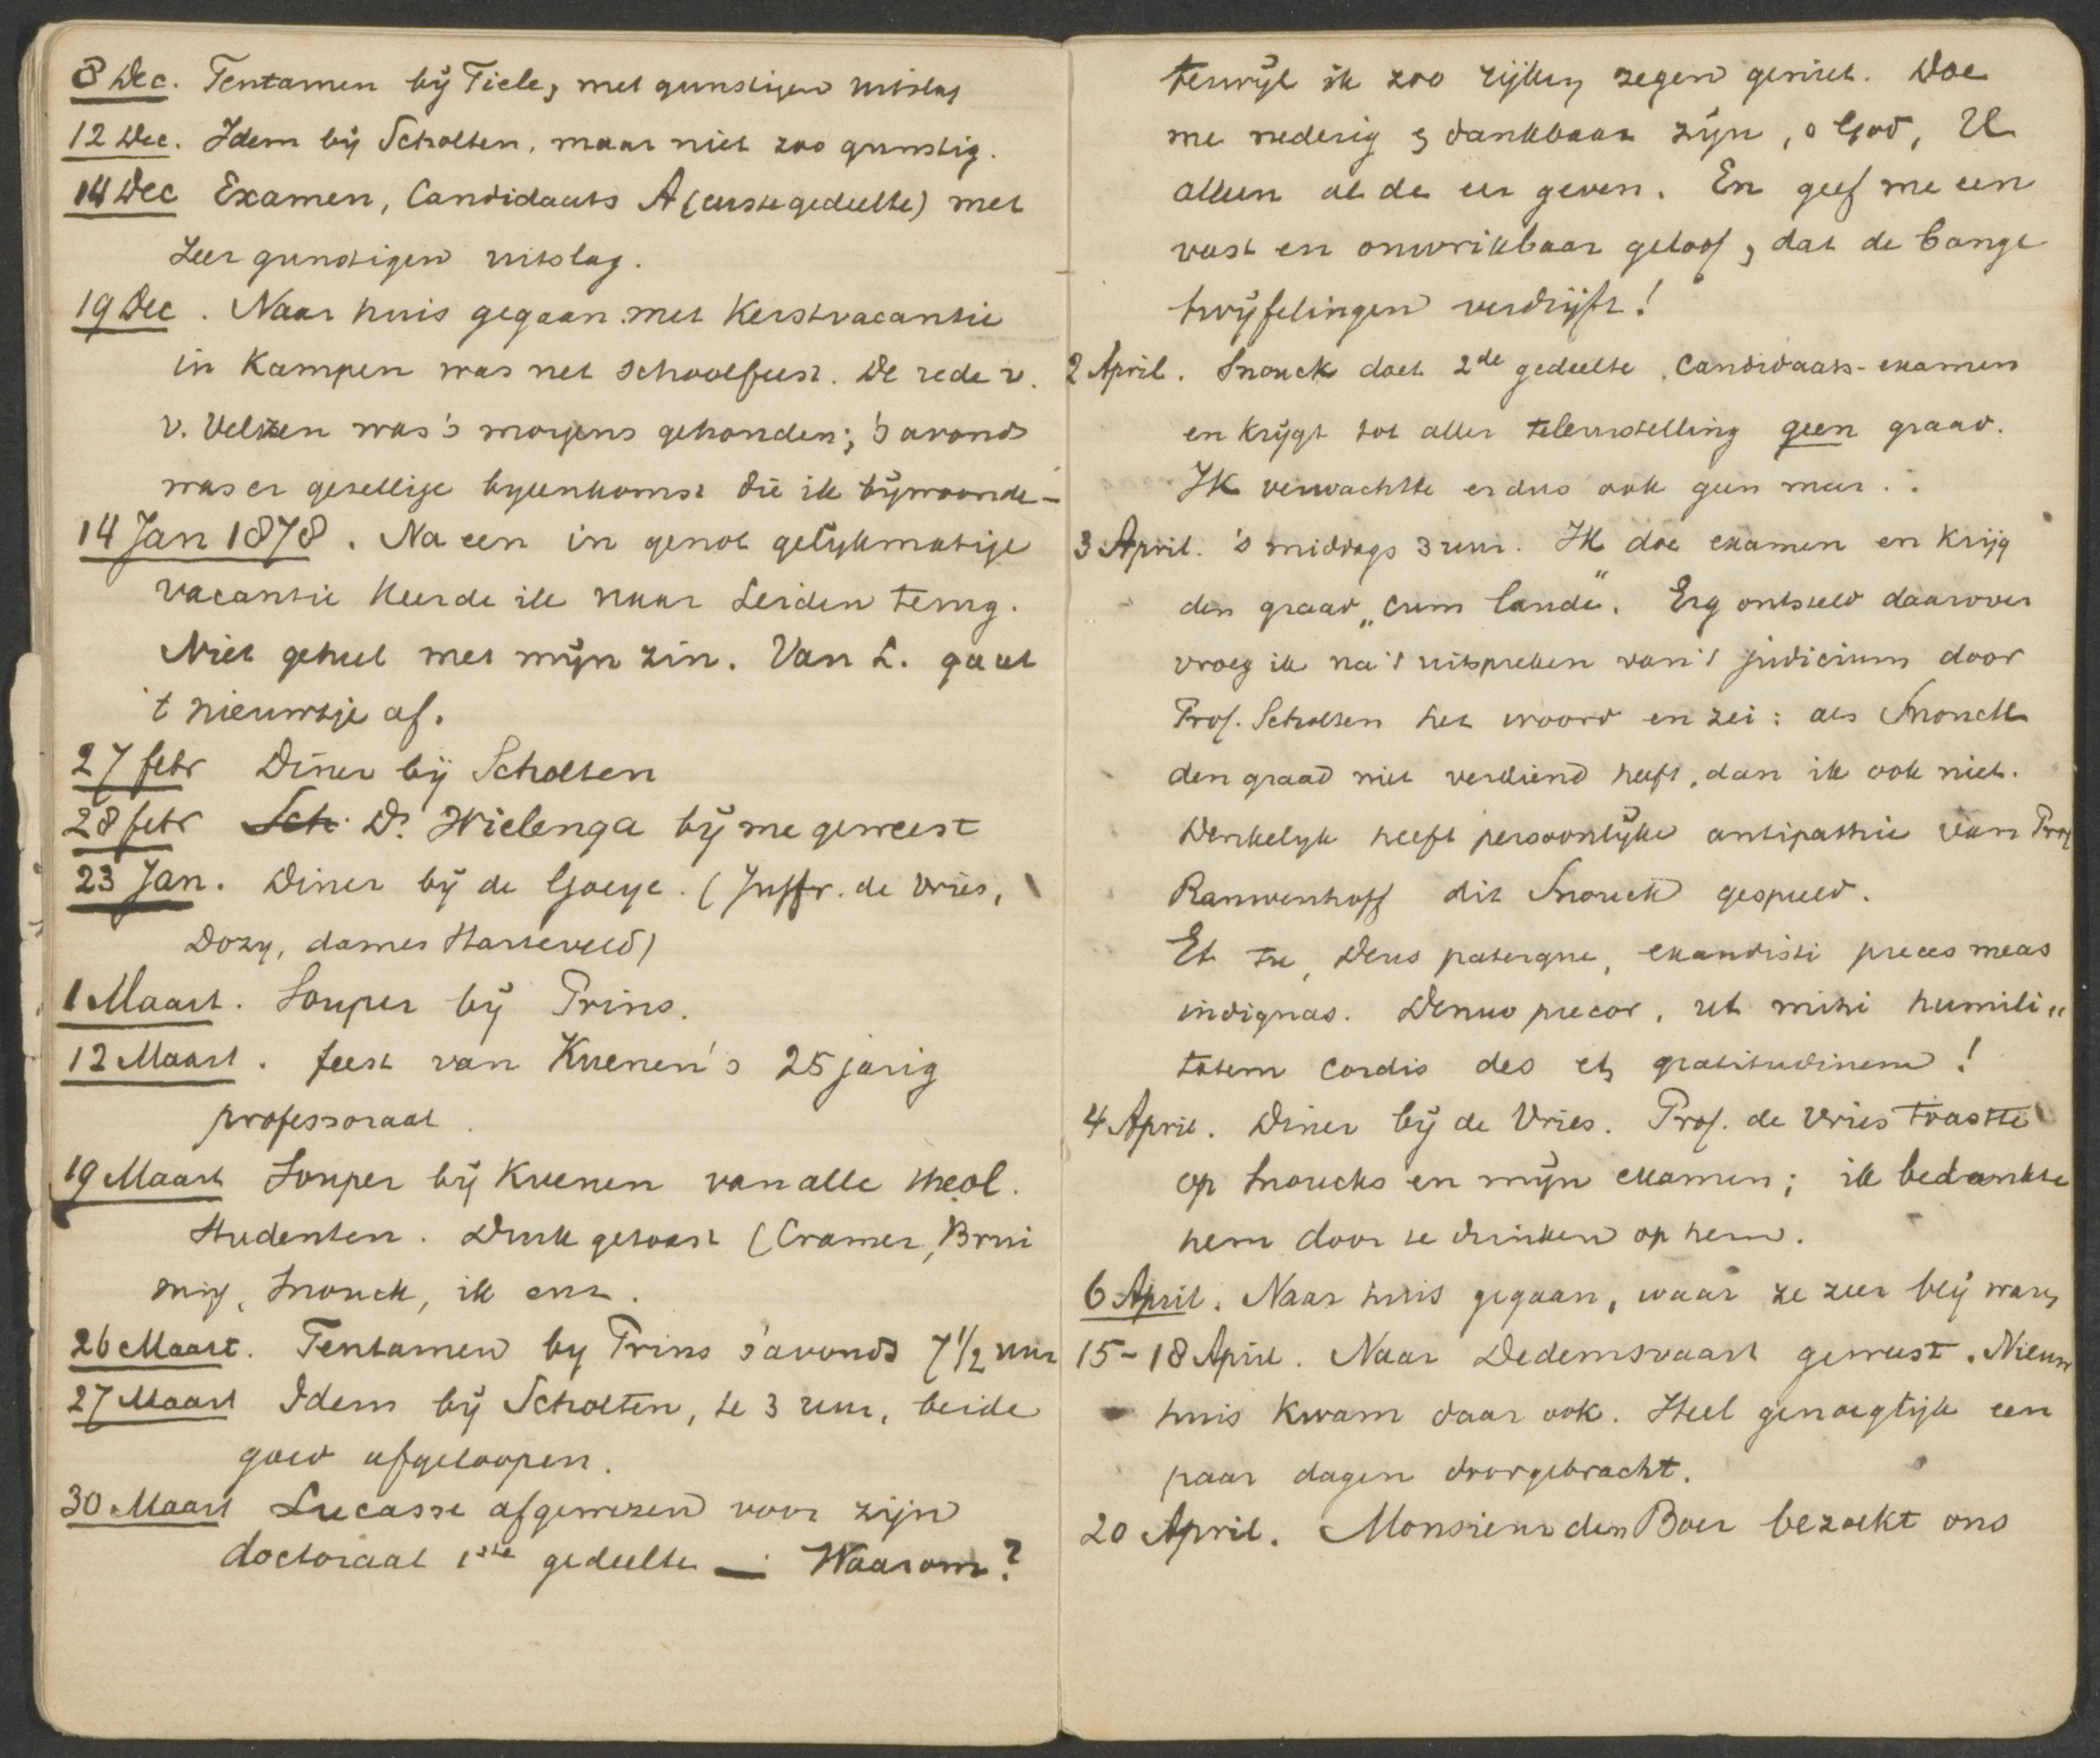 8 Dec. Tentamen bij Tiele, met gunstigen uitslag
12 Dec. Idem bij Scholten, maar niet zoo gunstig.
14 Dec Examen, Candidaats A (eerste gedeelte) met
zeer gunstigen uitslag.
19 Dec. Naar huis gegaan met Kerstvacantie
in Kampen was net schoolfeest. De rede v.
v. Velzen was 's morgens gehouden; 's avonds
was er gezellige byeenkomst die ik bijwoonde –
14 Jan 1878. Na een in genot gelijkmatige
vacantie keerde ik naar Leiden terug.
Niet geheel met mijn zin. Van L. gaat
't nieuwtje af.
27 febr Diner bij Scholten
28 febr Sch. Ds. Wielenga bij me geweest
23 Jan. Diner bij de Goeje. (Juffr. de Vries,
Dozy, dames Harteveld)
1 Maart. Souper bij Prins.
12 Maart. feest van Kuenen's 25 jarig
professoraat.
19 Maart Souper bij Kuenen van alle theol.
studenten. Druk getoast (Cramer, Brui
ning, Snouck, ik enz.
26 Maart. Tentamen by Prins s'avonds 7 1/2 uur
27 Maart Idem bij Scholten, te 3 uur, beide
goed afgeloopen.
30 Maart Lucasse afgewezen voor zijn
doctoraal 1ste gedeelte —. Waarom?
terwijl ik zoo rijken zegen geniet. Doe
me nederig & dankbaar zijn, o God, U
alleen al de eer geven. En geef me een
vast en onwrikbaar geloof, dat de bange
twijfelingen verdrijft!
2 April. Snouck doet 2de gedeelte Candidaats-examen
en krijgt tot aller teleurstelling geen graad.
Ik verwachtte er dus ook geen meer..
3 April. 's middags 3 uur. Ik doe examen en krijg
den graad „cum laude". Erg ontsteld daarover
vroeg ik na 't uitspreken van 't judicium door
Prof. Scholten het woord en zei: als Snouck
den graad niet verdiend heeft, dan ik ook niet.
Denkelyk heeft persoonlijke antipathie van Prof
Rauwenhoff dit Snouck gespeeld.
Et tu, Deus paterque, exaudisti preces meas
indignas. Denuo precor, ut mihi humili„
tatem cordis des et gratitudinem!
4 April. Diner bij de Vries. Prof. de Vries toastte
op Snoucks en mijn examen; ik bedankte
hem door te drinken op hem.
6 April. Naar huis gegaan, waar ze zeer blij waren
15-18 April. Naar Dedemsvaart geweest. Nieuw
huis kwam daar ook. Heel genoeglijk een
paar dagen doorgebracht.
20 April. Monsieur den Boer bezoekt ons